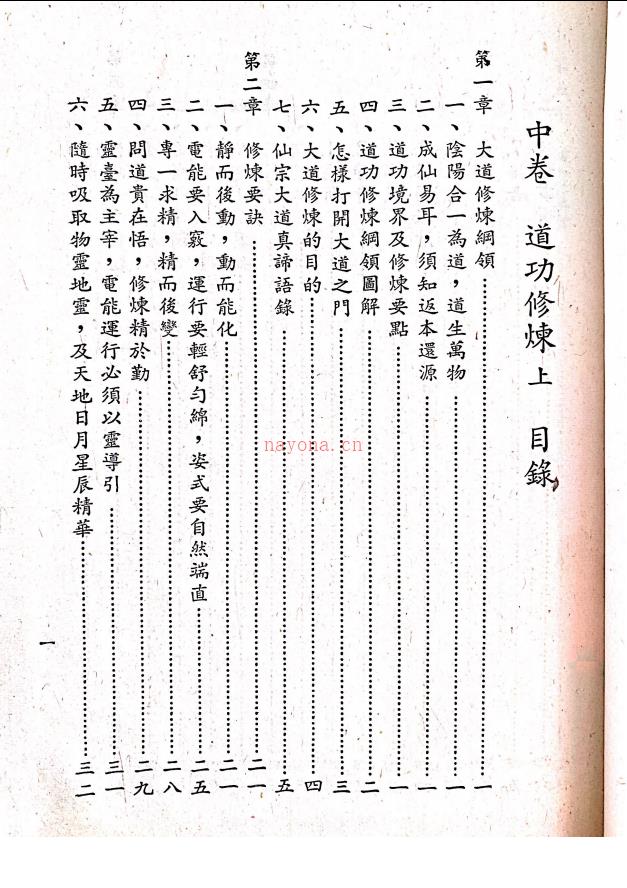 中卷　道功修煉上　目錄
第一章　大道修煉綱領……一
一、陰陽合一為道，道生萬物……一
二、成仙易耳，須知返本還源……一
三、道功境界及修煉要點……一
四、道功修煉綱領圖解……二
五、怎樣打開大道之門……三
六、大道修煉的目的……四
七、仙宗大道真諦語錄……五
第二章　修煉要訣……二一
一、靜而後動，動而能化……二一
二、電能要入竅，運行要輕舒勻綿，姿式要自然端直……二五
三、專一求精，精而後變……二八
四、問道貴在悟，修煉精於勤……二九
五、靈臺為主宰，電能運行必須以靈導引……三一
六、隨時吸取物靈地靈，及天地日月星辰精華……三二
一
nayona.cn